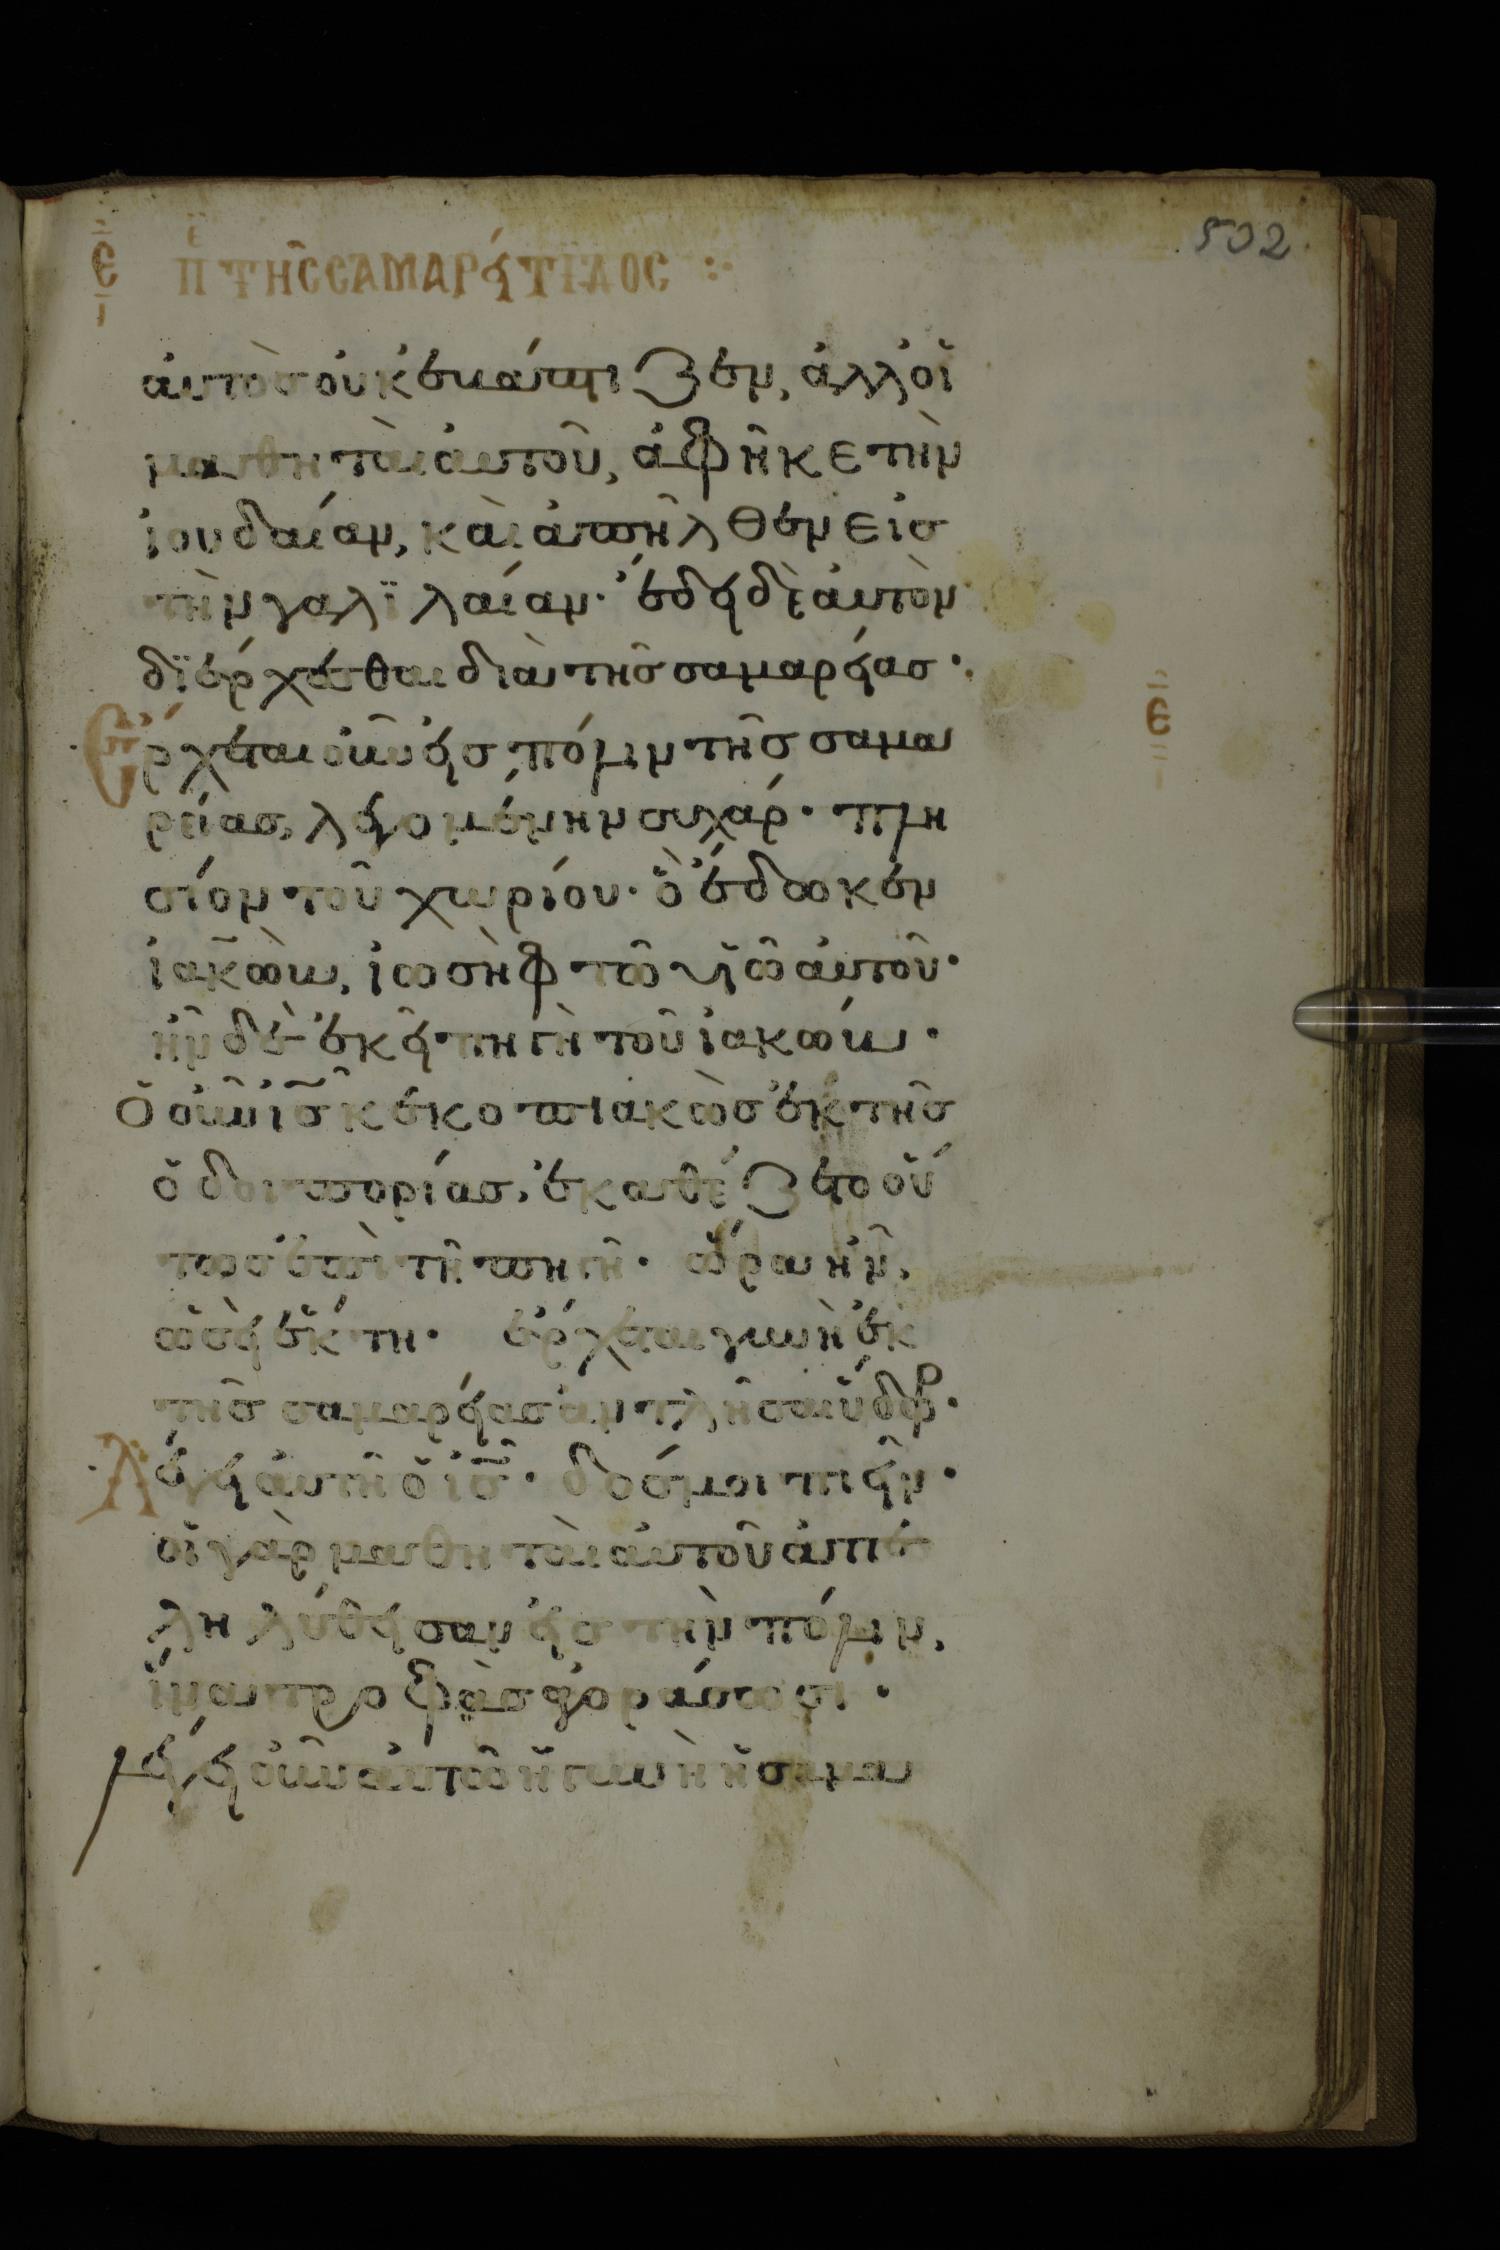 502
ε Περι ΤΗC CΑΜΑΡΕΙΤΙΔΟC
ἀυτὸσ ὀυκ ἐβάπτιζεν, ἀλλ ὀἱ
μαθηταὶ ἀυτοῦ, ἀφῆκε τὴν
ἰουδαίαν, καὶ ἀπῆλθεν εἰσ
τὴν γαλϊλαίαν· ἔδει δὲ ἀυτὸν
δϊέρχεσθαι διὰ τῆσ σαμαρείασ·
Ἔρχεται οὖν εἰσ πόλιν τῆσ σαμα
ε
ρείασ, λεγομένην συχάρ· πλη
σίον τοῦ χωρίου· ὃ ἔδωκεν
ἰακὼβ, ἰωσὴφ τῶ υἱῶ ἀυτοῦ·
ἦν δὲ ἐκεῖ πηγὴ τοῦ ἰακώβ·
Ὁ οὖν ἰσ κεκοπιακὼσ ἐκ τῆσ
ὁδοιπορίασ, ἐκαθέζετο οὕ
τωσ ἐπὶ τῆ πηγῆ· ὥρα ἦν,
ὡσεὶ ἕκτη· ἔρχεται γυνὴ ἐκ
τῆσ σαμαρείασ ἀντλῆσαι ὕδωρ·
Λέγει ἀυτῆ ὁ ἰσ· δόσ μοι πιεῖν·
οἱ γὰρ μαθηταὶ ἀυτοῦ ἀπε
ληλύθεισαν εἰσ τὴν πόλιν,
ἵνα τροφὰσ ἀγοράσωσι·
λέγει οὖν ἀυτῶ ἡ γυνὴ ἡ σαμα